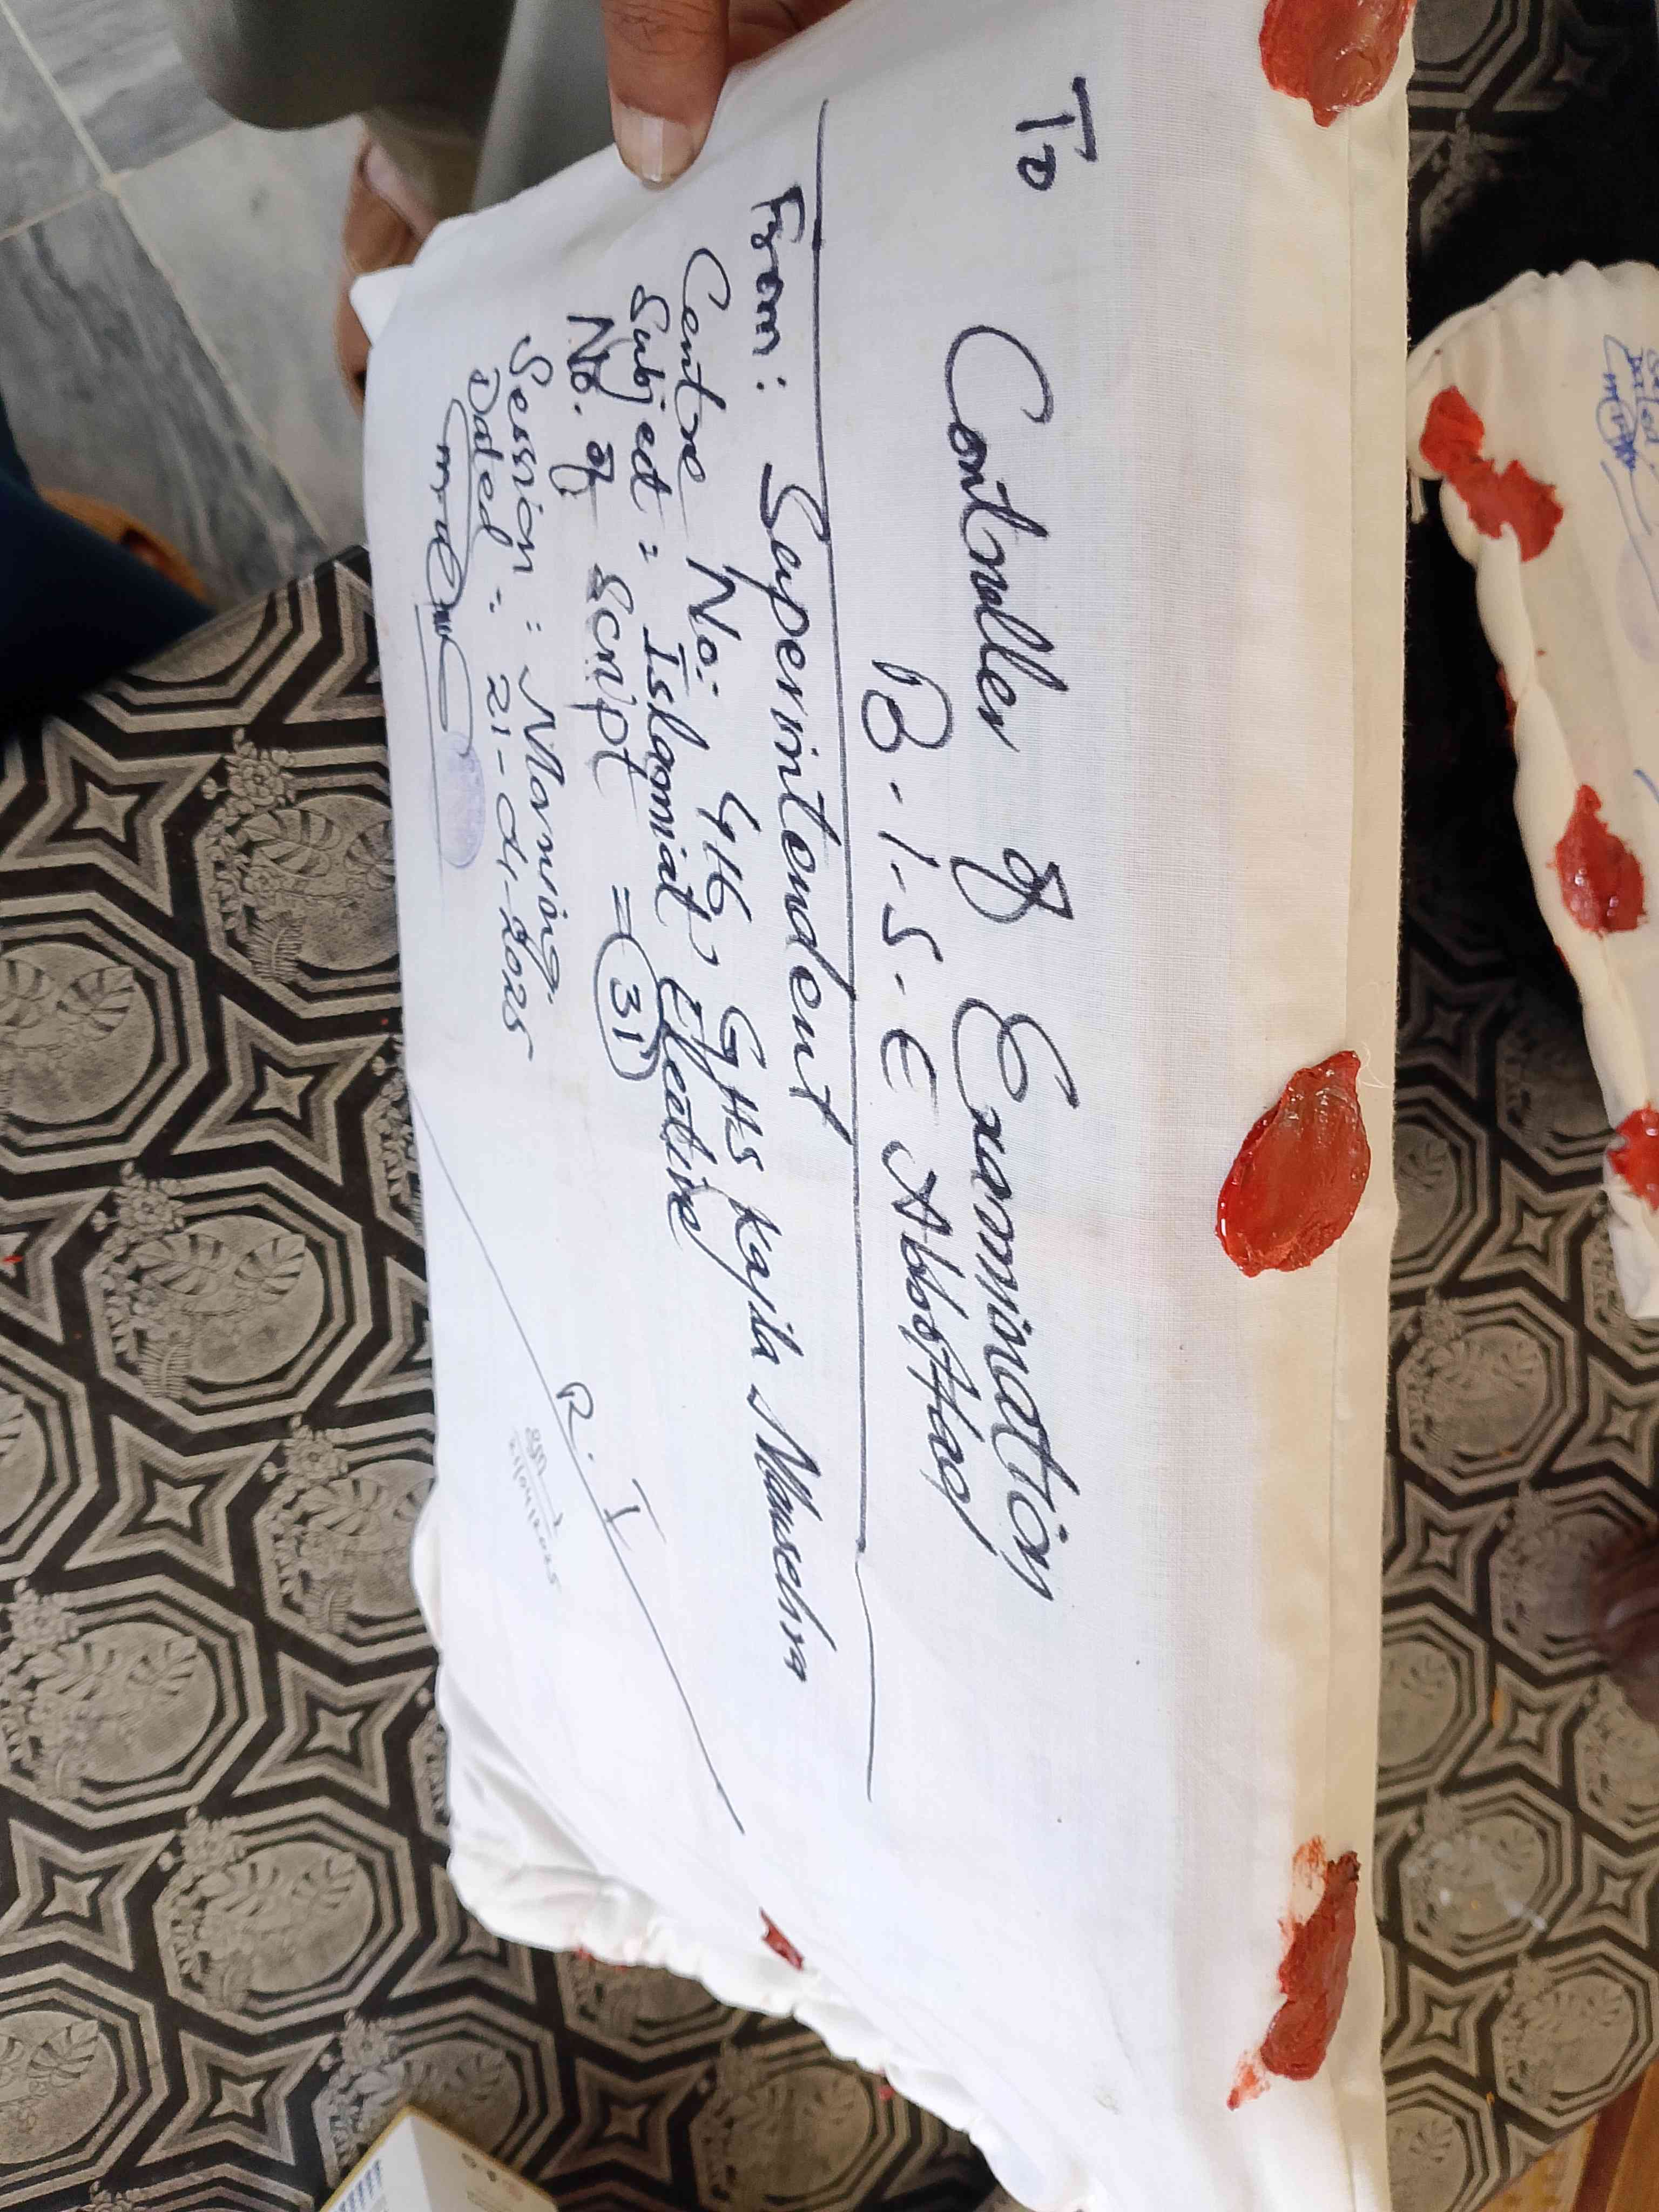 To
Controller of Examination
B.I.S.E Abbottabad
From: Superintendent
Centre No: 416, GHS Kajla Mansehra
Subject: Islamiat Elective
No. of Script = 31
Session: Morning
Dated: 21-04-2025
R.I
21/04/2025